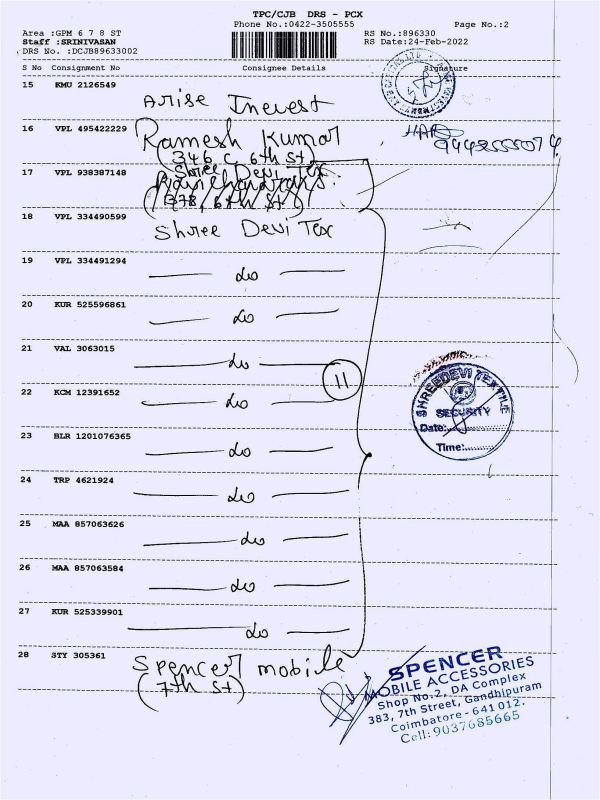 TPC/CJB DRS - PCX
Phone No.:0422-3505555
Page No.:2
Area :GPM 6 7 8 ST
Staff :SRINIVASAN
DRS No. :DCJB89633002
RS No.:896330
RS Date:24-Feb-2022
S No Consignment No Consignee Details Signature
15 KMU 2126549
Arise Inevest
16 VPL 495422229
Ramesh Kumar
(346 C, 6th St)
Shree Devi Tex
17 VPL 938387148
(378, 6th St)
18 VPL 334490599
Shree Devi Tex
19 VPL 334491294
do
20 KUR 525596861
do
21 VAL 3063015
do
11
22 KCM 12391652
do
SHREEDEVI TEXTILE
SECURITY
Date:
Time:
23 BLR 1201076365
do
24 TRP 4621924
do
25 MAA 857063626
do
26 MAA 857063584
do
27 KUR 525339901
do
28 STY 305361
Spencer mobile
(7th St)
SPENCER
MOBILE ACCESSORIES
Shop No.2, DA Complex
383, 7th Street, Gandhipuram
Coimbatore - 641 012.
Cell: 9037685665